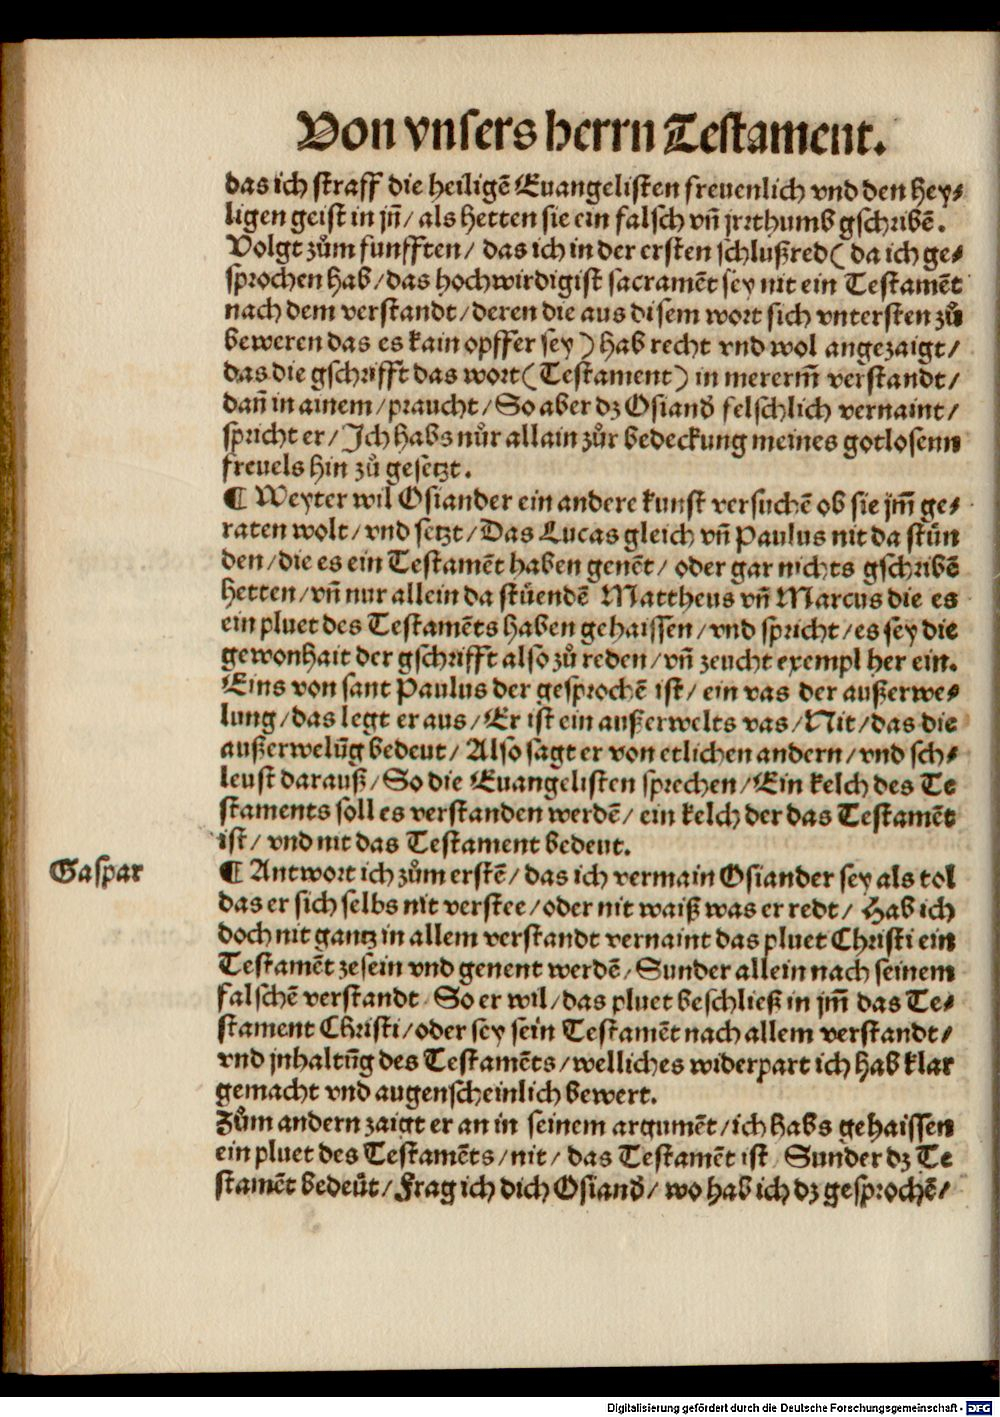 Von vnsers herrn Testament.
das ich straff die heiligẽ Euangelisten freuenlich vnd den hey⸗
ligen geist in jñ/ als hetten sie ein falsch vñ jrrthumb gschribẽ.
Volgt zům funfften/ das ich in der ersten schlußred( da ich ge⸗
sprochen hab/das hochwirdigist sacramẽt sey nit ein Testamẽt
nach dem verstandt/deren die aus disem wort sich vntersten zů
beweren das es kain opffer sey) hab recht vnd wol angezaigt/
das die gschrifft das wort(Testament) in mererm̃ verstandt/
dañ in ainem/praucht/So aber dz Osiand̕ felschlich vernaint/
spricht er/Ich habs nůr allain zůr bedeckung meines gotlosenn
freuels hin zů gesetzt.
¶ Weyter wil Osiander ein andere kunst versuchẽ ob sie jm̃ ge⸗
raten wolt/vnd setzt/Das Lucas gleich vñ Paulus nit da stůn
den/die es ein Testamẽt haben genẽt/ oder gar nichts gschribẽ
hetten/vñ nur allein da stüendẽ Mattheus vñ Marcus die es
ein pluet des Testamẽts haben gehaissen/vnd spricht/es sey die
gewonhait der gschrifft also zů reden/vñ zeucht exempl her ein.
Eins von sant Paulus der gesprochẽ ist/ein vas der außerwe⸗
lung/das legt er aus/Er ist ein außerwelts vas/Nit/das die
außerwelũg bedeut/ Also sagt er von etlichen andern/vnd sch⸗
leust darauß/So die Euangelisten sprechen/Ein kelch des Te
staments soll es verstanden werdẽ/ ein kelch der das Testamẽt
ist/ vnd nit das Testament bedeut.
Gaspar
¶ Antwort ich zům erstẽ/das ich vermain Osiander sey als tol
das er sich selbs nit verstee/oder nit waiß was er redt/ Hab ich
doch nit gantz in allem verstandt vernaint das pluet Christi ein
Testamẽt ze sein vnd genent werdẽ/Sunder allein nach seinem
falschẽ verstandt/So er wil/das pluet beschließ in jm̃ das Te⸗
stament Christi/oder sey sein Testamẽt nach allem verstandt/
vnd jnhaltũg des Testamẽts/welliches widerpart ich hab klar
gemacht vnd augenscheinlich bewert.
Zům andern zaigt er an in seinem argumẽt/ich habs gehaissen
ein pluet des Testamẽts/nit/ das Testamẽt ist/ Sunder dz Te
stamẽt bedeůt/Frag ich dich Osiand̕/ wo hab ich dz gesprochẽ/
Digitalisierung gefördert durch die Deutsche Forschungsgemeinschaft - DFG